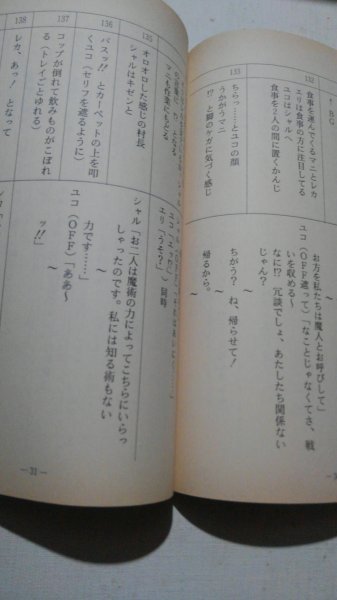 ↑BG
132
食事を運んでくるマニとレカ
エリは食事の方に注目してる
ユコはシャルへ
食事を2人の間に置くかんじ
お方を私たちは魔人とお呼びして」
ユコ(OFF遮って)「なことじゃなくてさ、戦
いを収める〜
なに!? 冗談でしょ、あたしたち関係ない
じゃん?
〜
133
ちらっ……とユコの顔
うかがうマニ
!? と脚のケガに気づく感じ
ちがう? ね、帰らせて!
〜
帰るから。
〜
ッニも作業にもどる
エリ「うそ?」
同時
135
オロオロした感じの村長
シャルはキゼンと
〜
シャル「お二人は魔術の力によってこちらにいらっ
しゃったのです。私には知る術もない
136
バスッ!! とカーペットの上を叩
くユコ(セリフを遮るように)
〜
力です……」
ユコ(OFF)「ああ〜
ッ!!」
137
コップが倒れて飲みものがこぼれ
る(トレイごとゆれる)
138
レカ、あっ! となって
〜
— 31 —